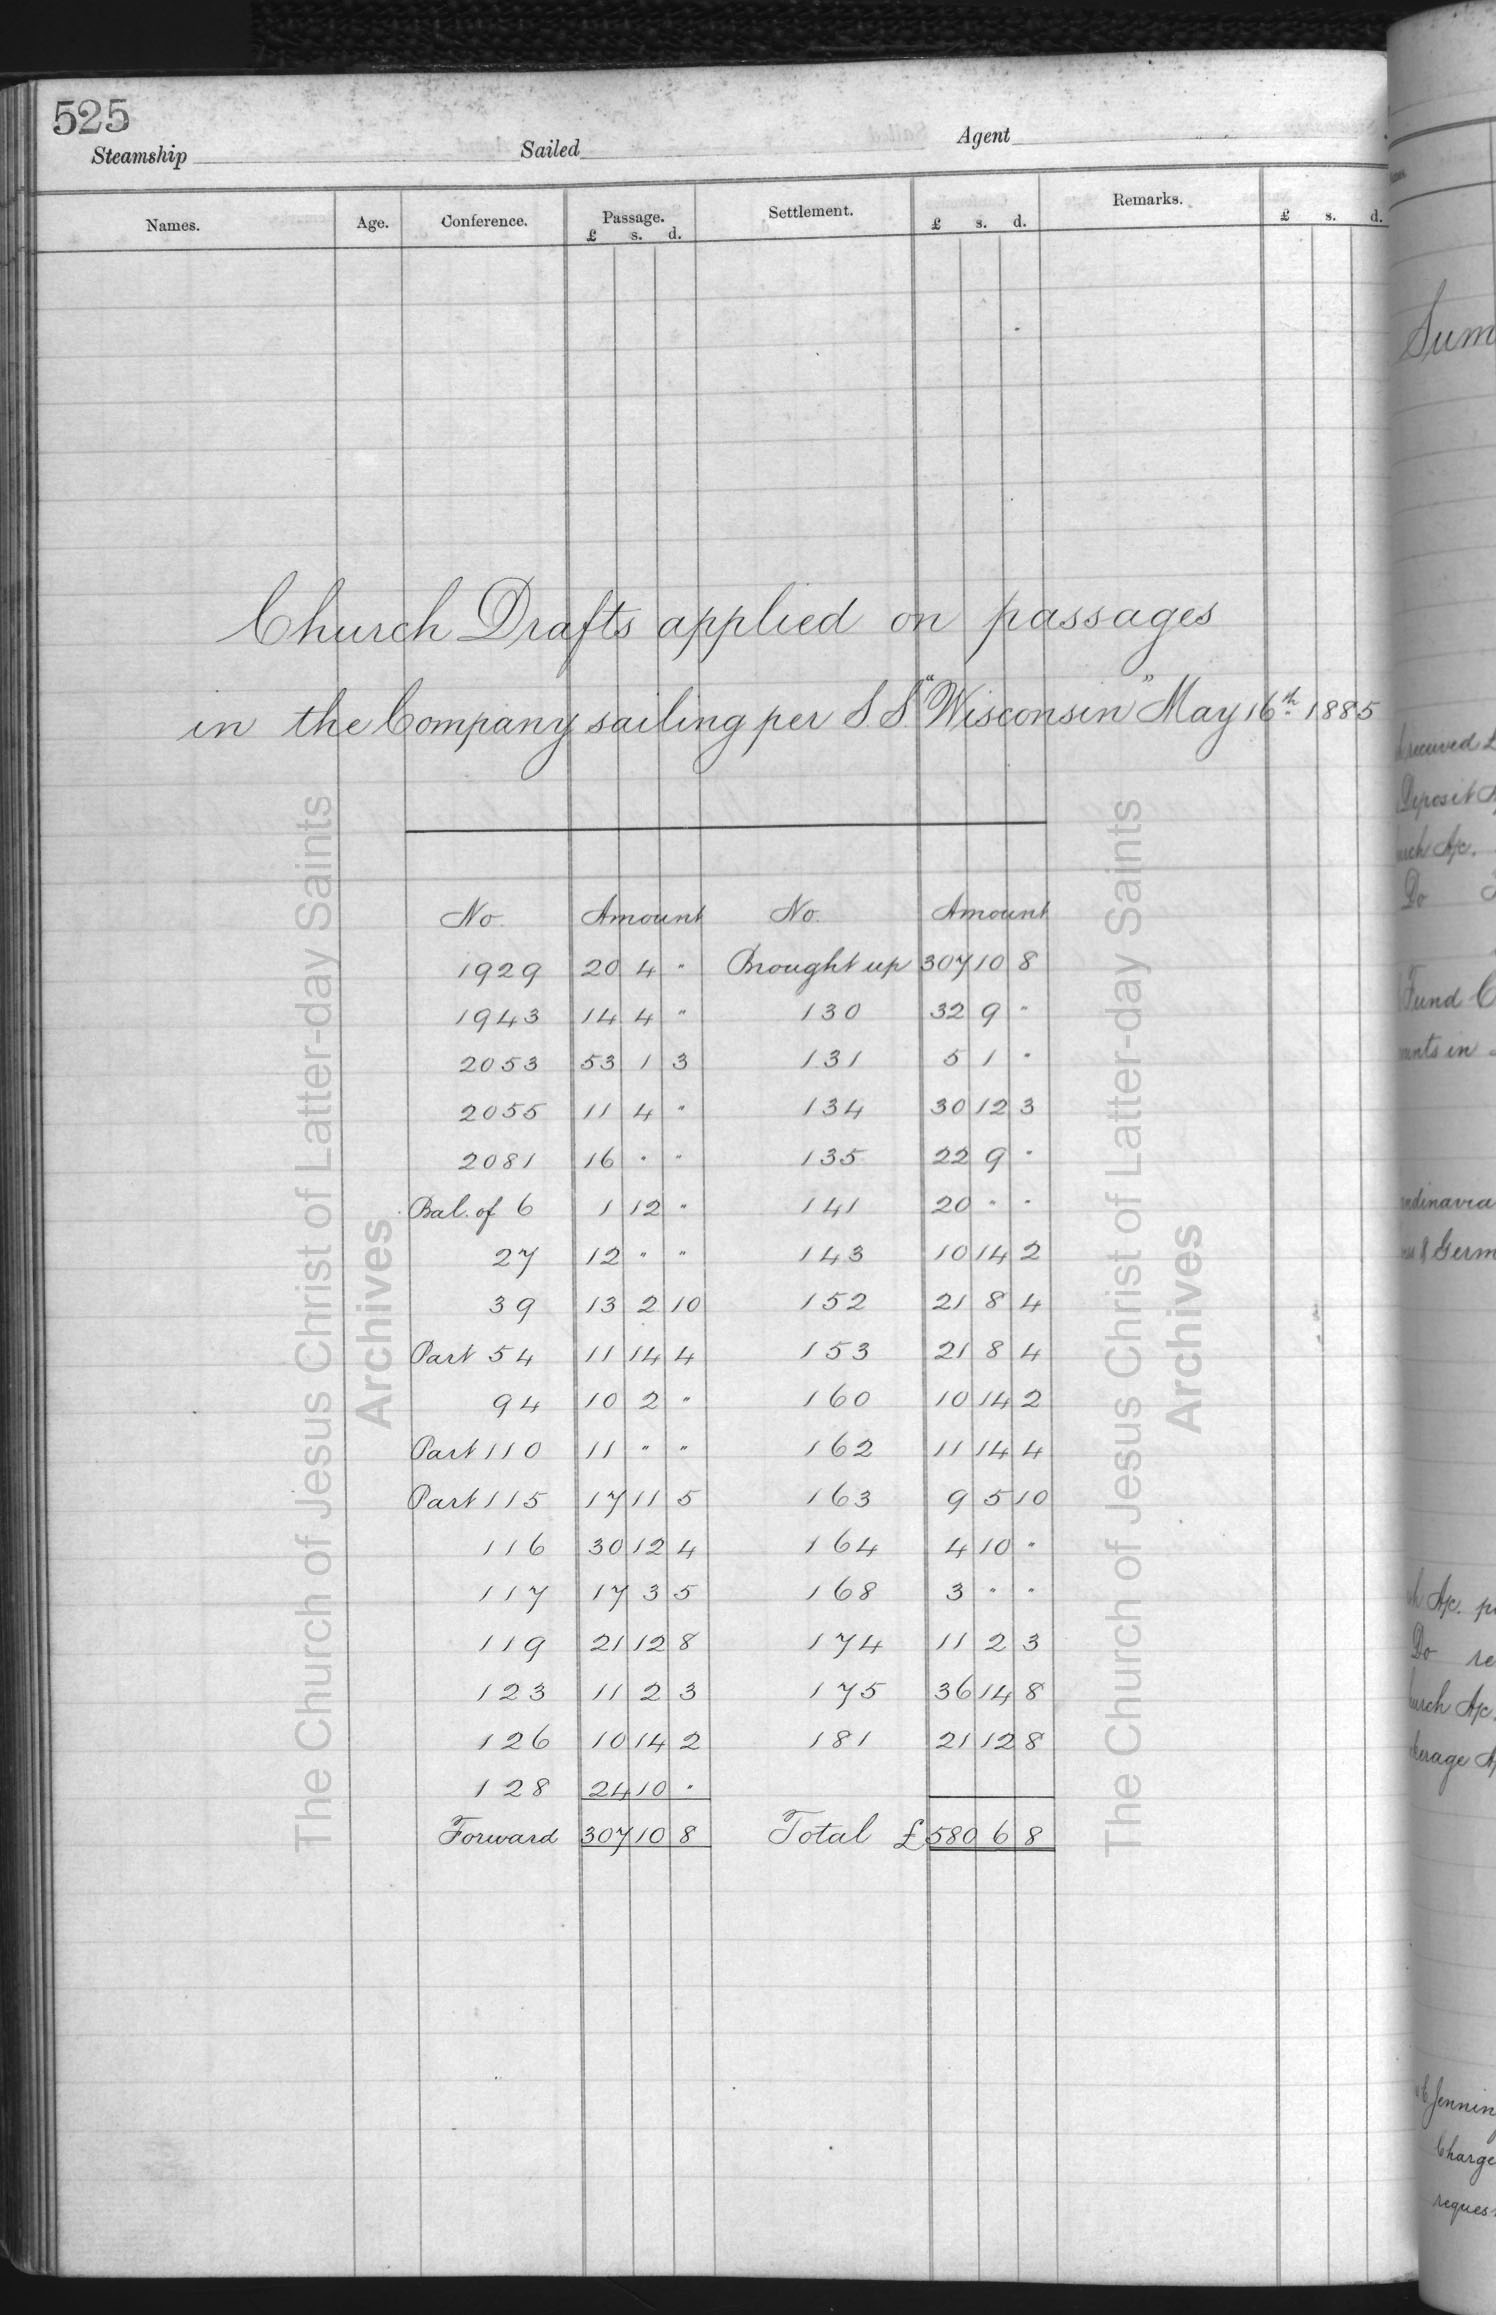 525
Steamship Sailed Agent
Names. Age. Conference. Passage. Settlement. £ s. d. Remarks. £ s. d.
£ s. d.
Church Drafts applied on passages
in the Company sailing per S.S. "Wisconsin" May 16th 1885
No. Amount No. Amount
1929 20 4 " Brought up 307 10 8
1943 14 4 " 130 32 9 "
2053 53 1 3 131 5 1 "
2055 11 4 " 134 30 12 3
2081 16 " " 135 22 9 "
Bal. of 6 1 12 " 141 20 " "
27 12 " " 143 10 14 2
39 13 2 10 152 21 8 4
Part 54 11 14 4 153 21 8 4
94 10 2 " 160 10 14 2
Part 110 11 " " 162 11 14 4
Part 115 17 11 5 163 9 5 10
116 30 12 4 164 4 10 "
117 17 3 5 168 3 " "
119 21 12 8 174 11 2 3
123 11 2 3 175 36 14 8
126 10 14 2 181 21 12 8
128 24 10 "
Forward 307 10 8 Total £ 580 6 8
The Church of Jesus Christ of Latter-day Saints
Archives
The Church of Jesus Christ of Latter-day Saints
Archives
received £
Deposit
Do
Fund
in
Do